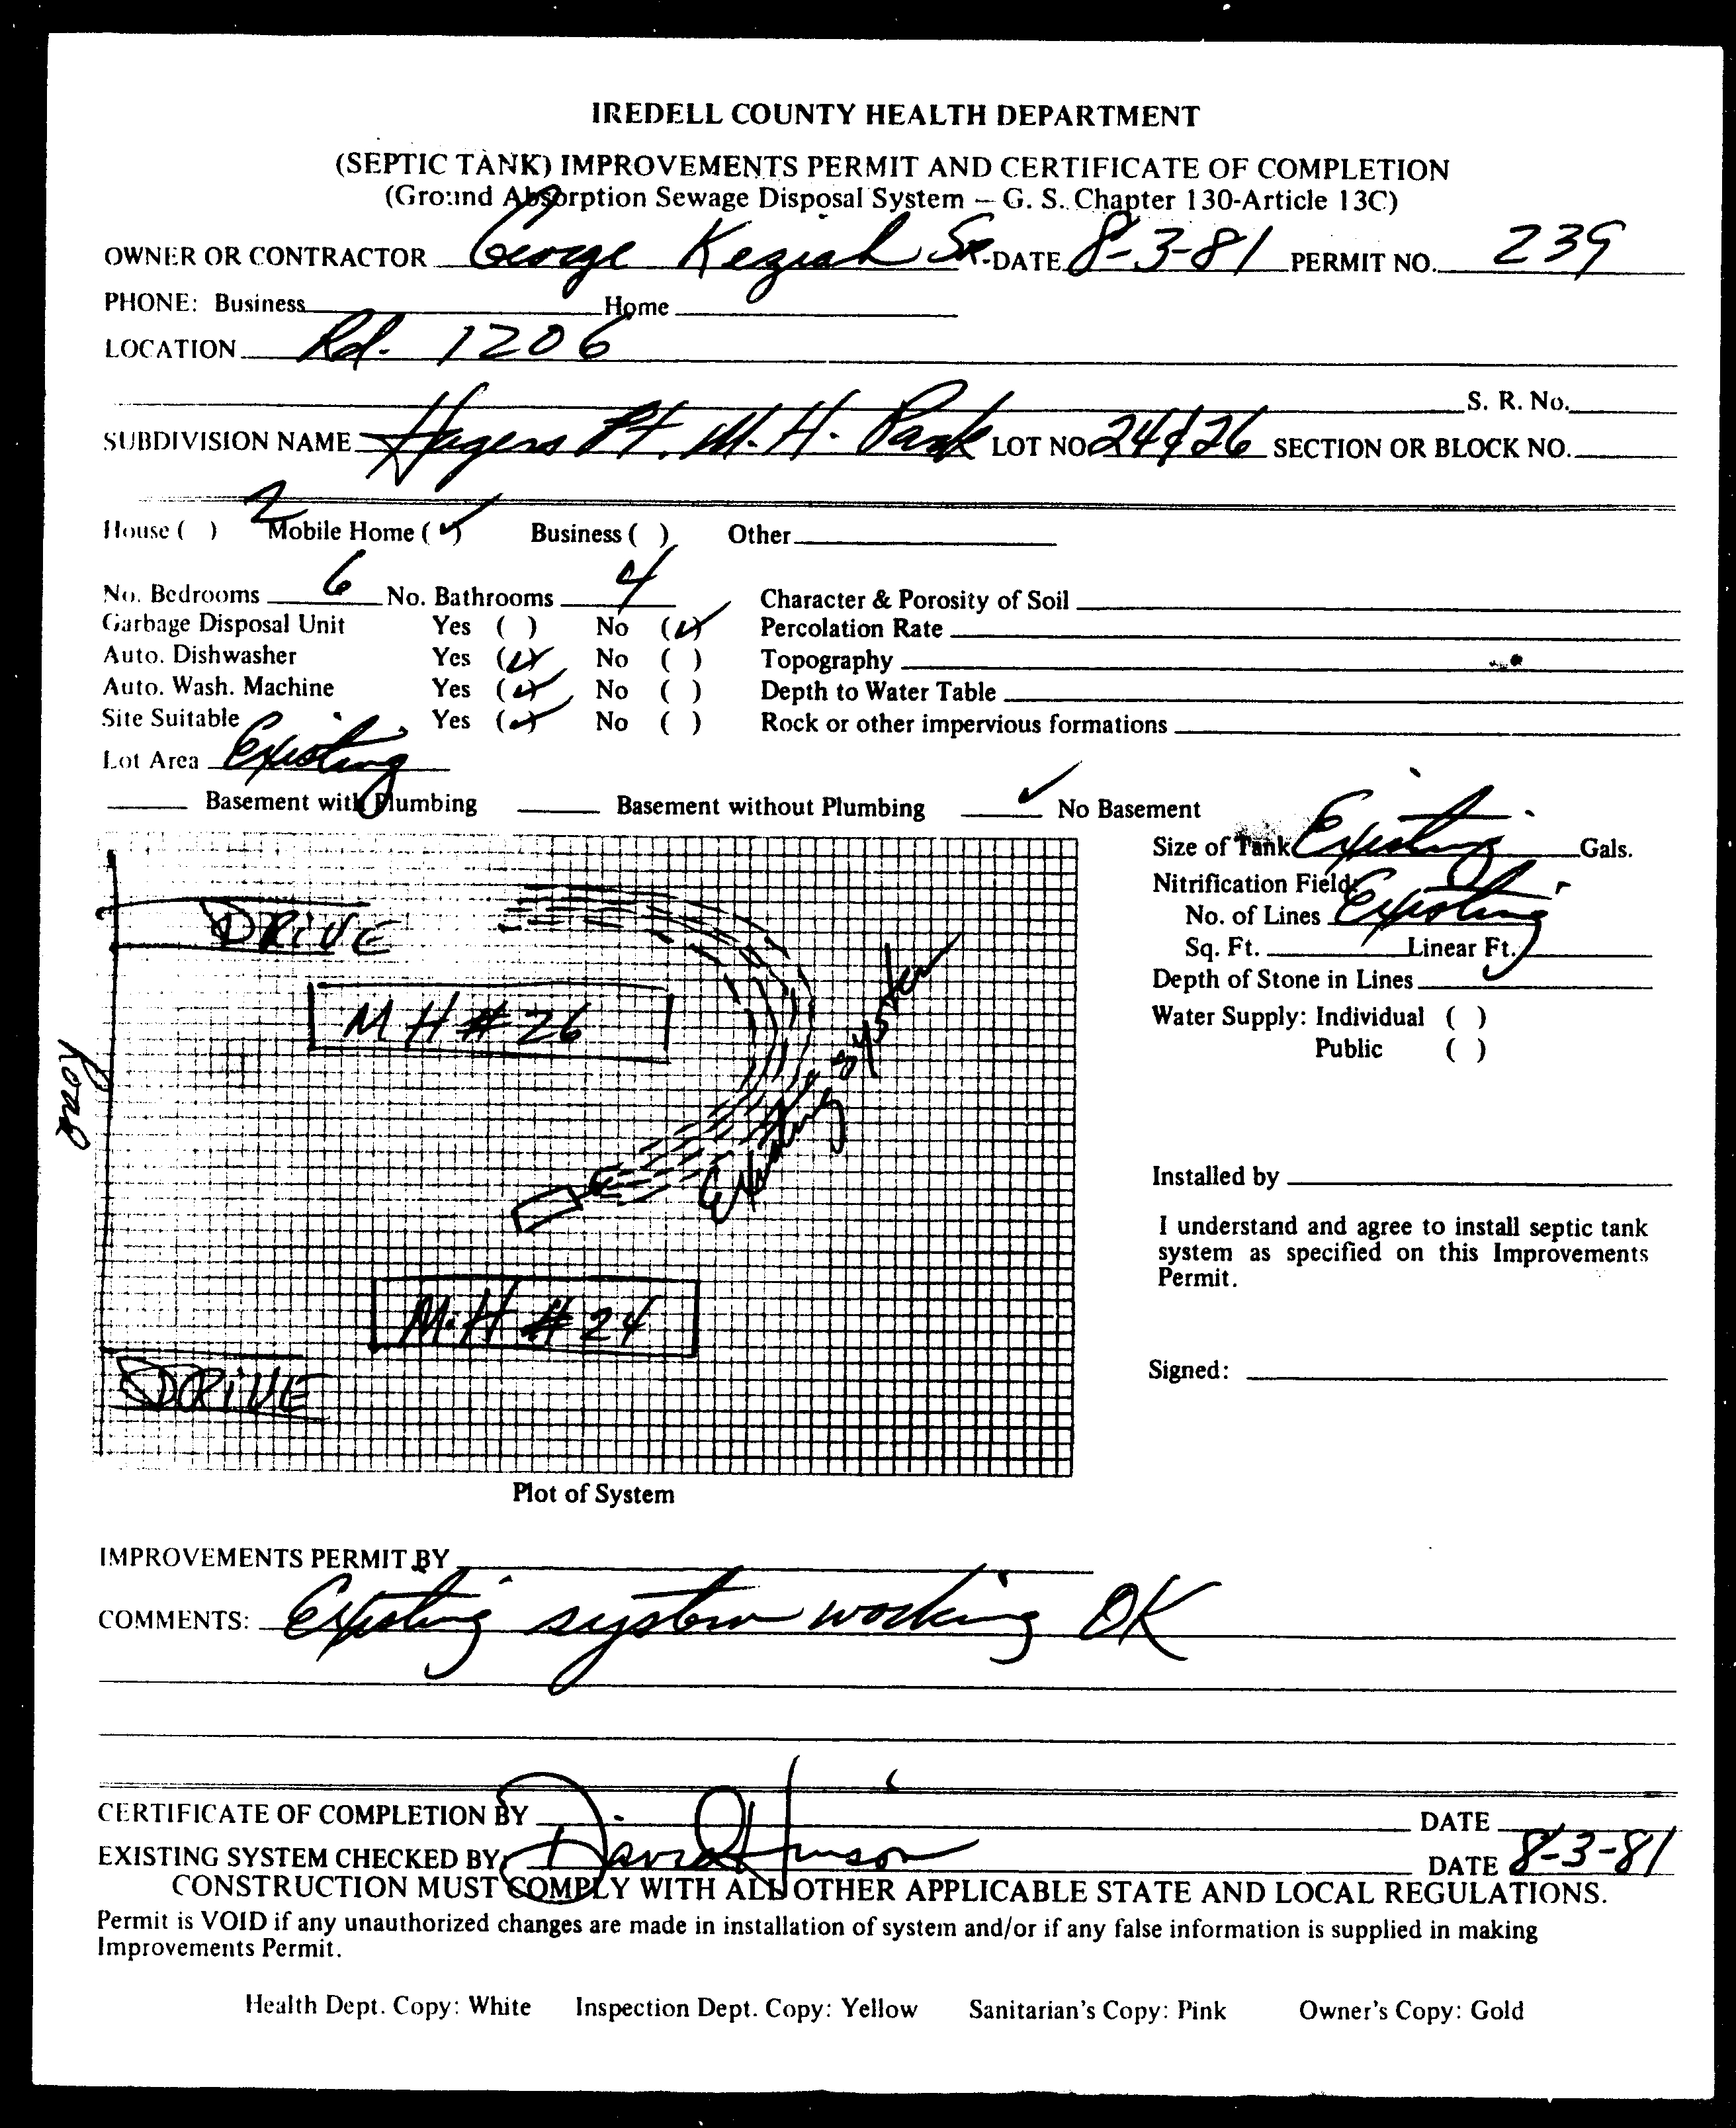 IREDELL COUNTY HEALTH DEPARTMENT
(SEPTIC TANK) IMPROVEMENTS PERMIT AND CERTIFICATE OF COMPLETION
(Ground Absorption Sewage Disposal System – G. S. Chapter 130-Article 13C)
OWNER OR CONTRACTOR George Keziah Sr. DATE 8-3-81 PERMIT NO. 239
PHONE: Business Home
LOCATION Rd. 1206
S. R. No.
SUBDIVISION NAME Hagers Pt. M. H. Park LOT NO 24 & 26 SECTION OR BLOCK NO.
House ( ) 2 Mobile Home (✓) Business ( ) Other
No. Bedrooms 6 No. Bathrooms 4 Character & Porosity of Soil
Garbage Disposal Unit Yes ( ) No (✓) Percolation Rate
Auto. Dishwasher Yes (✓) No ( ) Topography
Auto. Wash. Machine Yes (✓) No ( ) Depth to Water Table
Site Suitable Yes (✓) No ( ) Rock or other impervious formations
Lot Area Existing
Basement with Plumbing Basement without Plumbing ✓ No Basement
Size of Tank Existing Gals.
Nitrification Field:
No. of Lines Existing
Sq. Ft. Linear Ft.
Depth of Stone in Lines
Water Supply: Individual ( )
Public ( )
Installed by
I understand and agree to install septic tank
system as specified on this Improvements
Permit.
Signed:
DRIVE
MH # 26
Road
Existing system
M.H # 24
DRIVE
Plot of System
IMPROVEMENTS PERMIT BY
COMMENTS: Existing system working OK
CERTIFICATE OF COMPLETION BY DATE
EXISTING SYSTEM CHECKED BY: David Hinson DATE 8-3-81
CONSTRUCTION MUST COMPLY WITH ALL OTHER APPLICABLE STATE AND LOCAL REGULATIONS.
Permit is VOID if any unauthorized changes are made in installation of system and/or if any false information is supplied in making
Improvements Permit.
Health Dept. Copy: White Inspection Dept. Copy: Yellow Sanitarian's Copy: Pink Owner's Copy: Gold